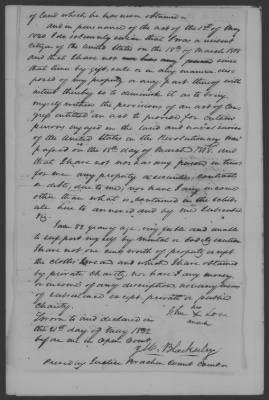 of land which he has never obtained
and in pursuance of the act of the 1st of May
1820 I do solemnly swear that I was a resident
citizen of the United States on the 18th of March 1818
and that I have not since
that time by gift, sale or in any manner dis
posed of my property or any part thereof with
intent thereby so to diminish it as to bring
myself within the provisions of an act of Con
gress entitled an act to provide for certain
persons engaged in the land and naval service
of the United States in the Revolutionary War
passed on the 18th day of March 1818 and
that I have not nor has any person in trust
for me any property securities contracts
or debts due to me, nor have I any income
other than what is contained in the sched
ule here to annexed and by me subscribed
I am 82 years of age, very feeble and unable
to support myself by
I have not one cent worth of property except
the clothes I wear and which I have obtained
by private charity nor have I any money
or income of any description nor any means
of subsistence except private or public
charity
his
X Love
mark
Sworn to and declared in
the 21st day of May 1832
before me in Open Court
Blackerby
Presiding Justice Bracken County Court